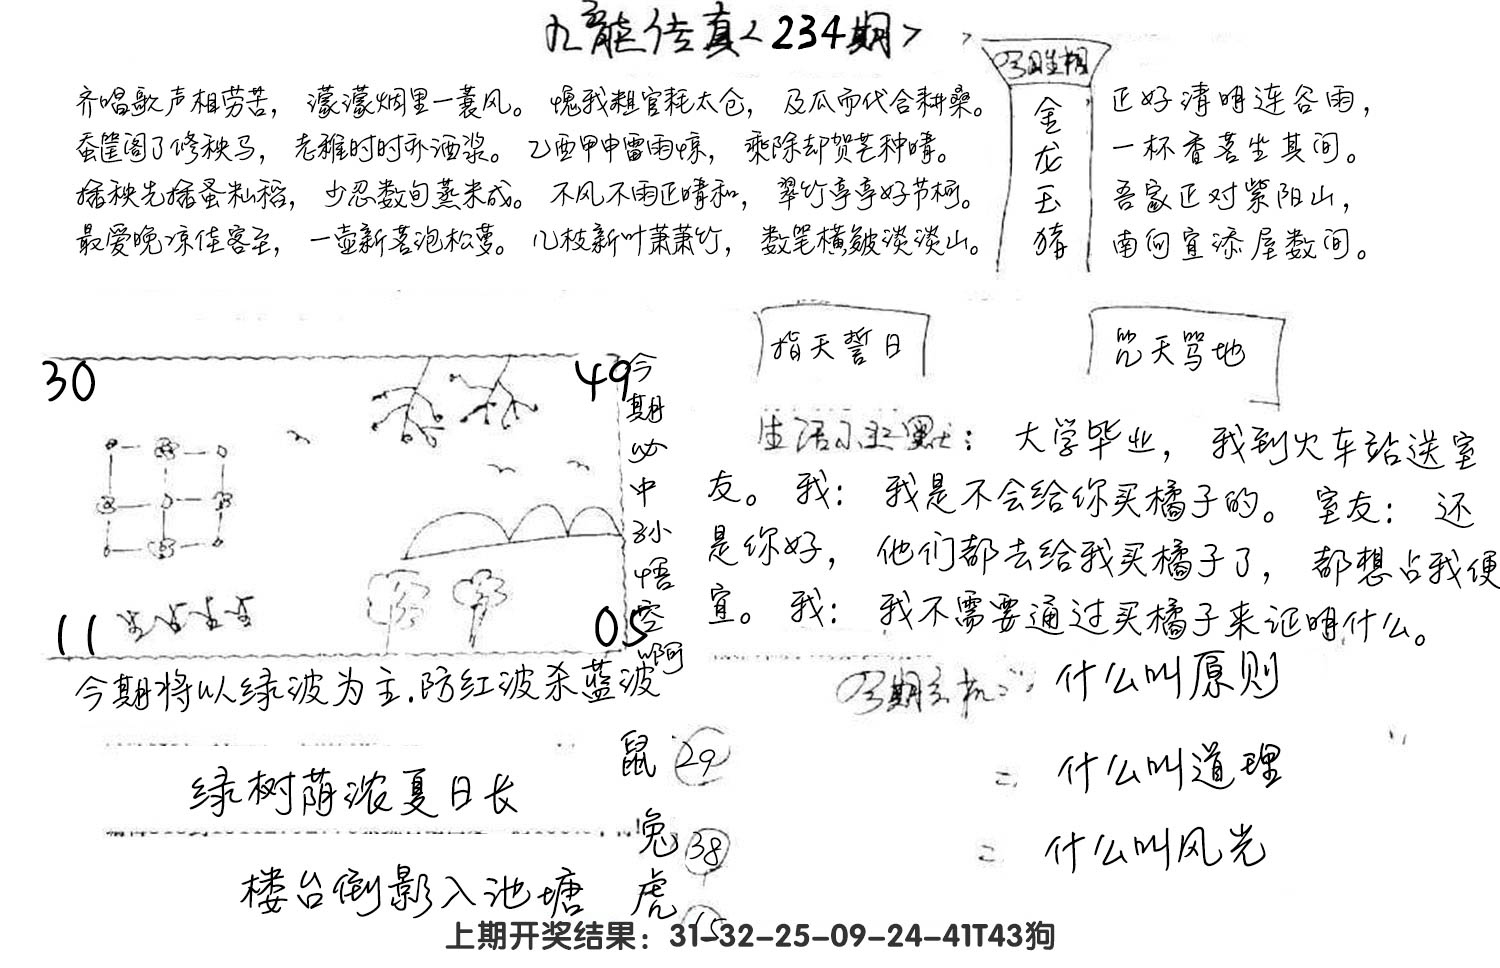 九龙传真<234期>
今日生相
金龙玉猪
齐唱歌声相劳苦，濛濛烟里一蓑风。愧我粗官耗太仓，及瓜而代合耕桑。
蚕筐阁了修秧马，老稚时时补酒浆。乙酉甲申雷雨惊，乘除却贺芒种晴。
插秧先插蚤籼稻，少忍数旬蒸米成。不风不雨正晴和，翠竹亭亭好节柯。
最爱晚凉佳客至，一壶新茗泡松萝。几枝新叶萧萧竹，数笔横皴淡淡山。
正好清明连谷雨，
一杯香茗坐其间。
吾家正对紫阳山，
南向宜添屋数间。
指天誓日
咒天骂地
30
49
11
05
今期必中孙悟空啊
生活小幽默：大学毕业，我到火车站送室
友。我：我是不会给你买橘子的。室友：还
是你好，他们都去给我买橘子了，都想占我便
宜。我：我不需要通过买橘子来证明什么。
今期将以绿波为主.防红波杀蓝波
今期玄机：什么叫原则
什么叫道理
什么叫风光
鼠 29
兔 38
虎 15
绿树荫浓夏日长
楼台倒影入池塘
上期开奖结果：31-32-25-09-24-41T43狗